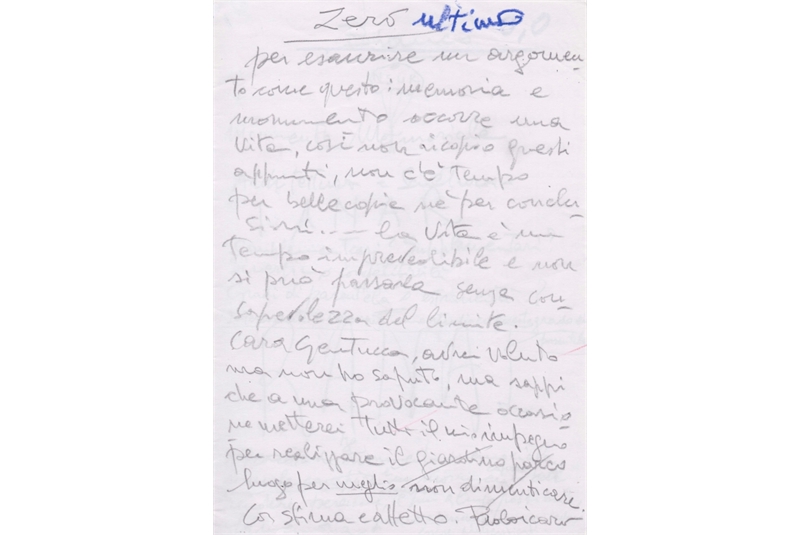 Zero ultimo
per esaurire un argomen-
to come questo: memoria e
monumento occorre una
vita, così non ricopio questi
appunti, non c'è tempo
per belle copie nè per conclu-
sioni... — la vita è un
tempo imprevedibile e non
si può passarla senza con-
sapevolezza del limite.
Cara Gentucca, avrei voluto
ma non ho saputo, ma sappi
che a una provocante occasio-
ne metterei tutto il mio impegno
per realizzare il giardino parco
luogo per meglio non dimenticare.
Con stima e affetto.